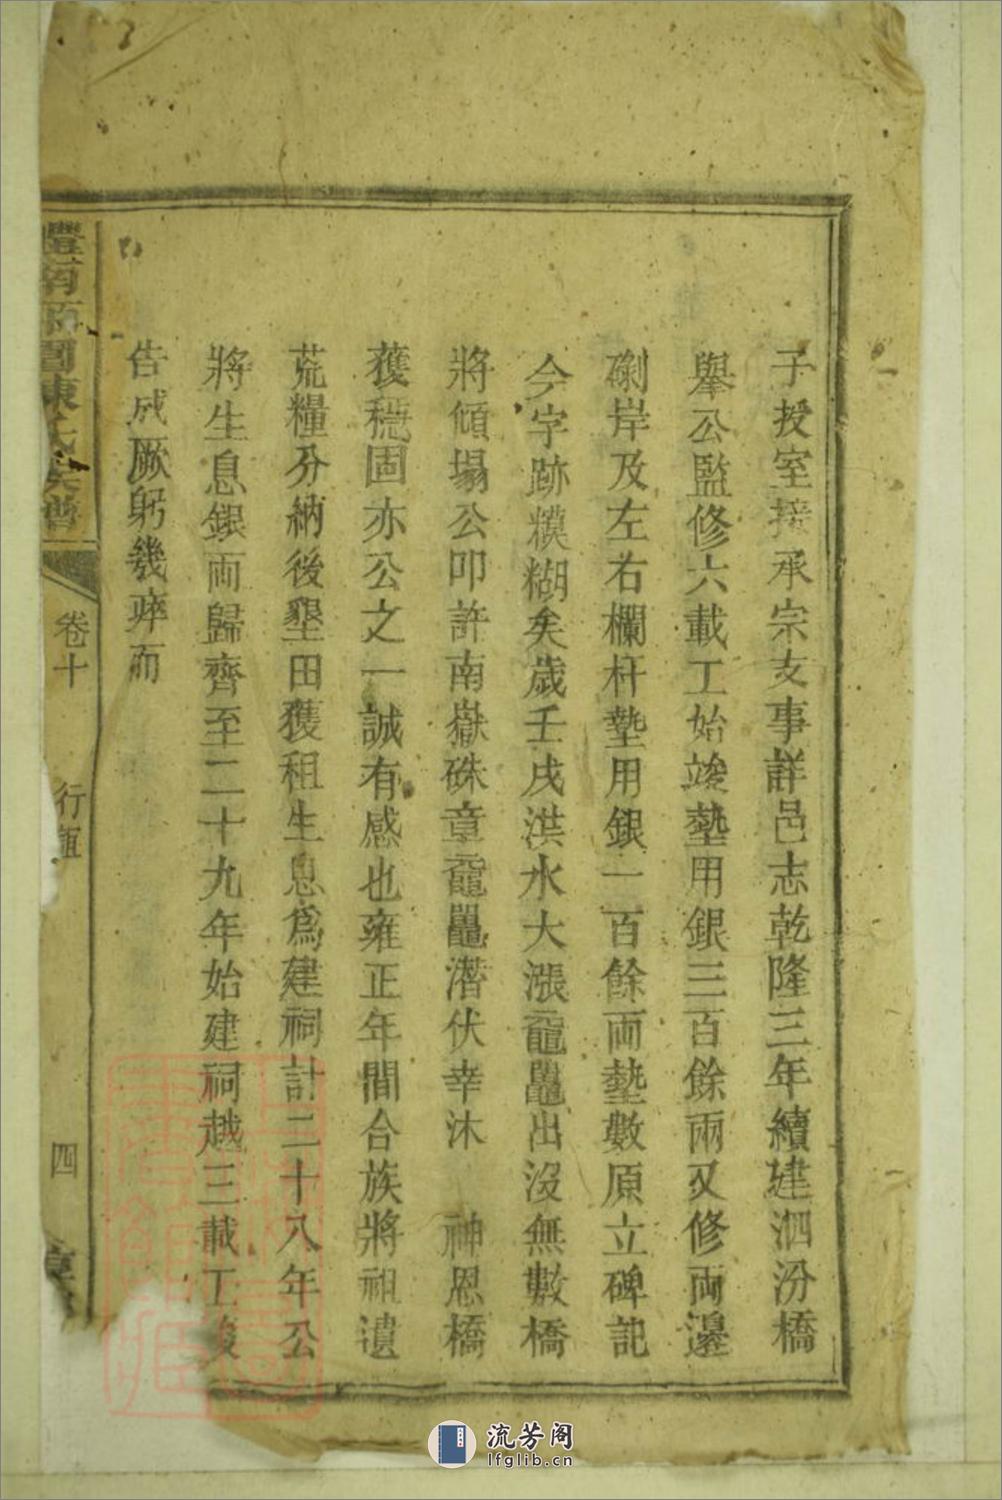 子授室接承宗支事詳邑志乾隆三年續建泗汾橋
舉公監修六載工始竣墊用銀三百餘兩又修両邊
磡岸及左右欄杆墊用銀一百餘両墊數原立碑記
今字跡糢糊矣歲壬戌洪水大漲黿鼉出沒無數橋
將傾塌公叩許南嶽硃章黿鼉潛伏幸沐 神恩橋
獲穩固亦公之一誠有感也雍正年間合族將祖遺
荒糧分納後墾田獲租生息爲建祠計二十八年公
將生息銀両歸齊至二十九年始建祠越三載工竣
告成厥躬幾瘁而
氏族譜
卷十
行
四
流芳阁
lfglib.cn